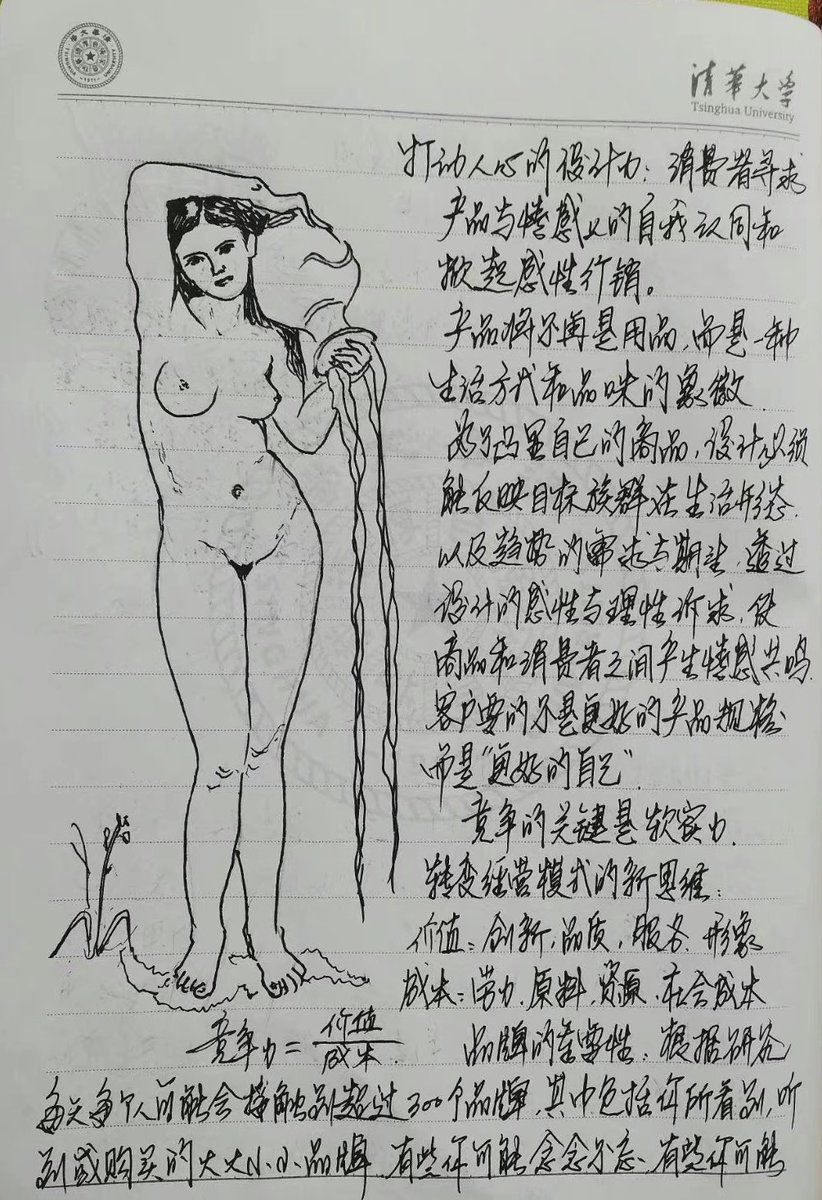 清華大学
Tsinghua University
打动人心的设计力：消费者寻求
产品与情感上的自我认同和
掀起感性行销。
产品将不再是用品，而是一种
生活方式和品味的象徵
为了凸显自己的商品，设计必须
能反映目标族群在生活形态
以及趋势的需求与期望，透过
设计的感性与理性诉求，使
商品和消费者之间产生情感共鸣
客户要的不是更好的产品规格
而是“更好的自己”
竞争的关键是软实力．
转变经营模式的新思维：
价值：创新，品质，服务．形象
成本：劳力．原料，资源．社会成本
竞争力＝价值/成本
品牌的重要性：根据研究
每天每个人可能会接触到超过300个品牌，其中包括你所看到，听
到或购买的大大小小品牌．有些你可能念念不忘．有些你可能